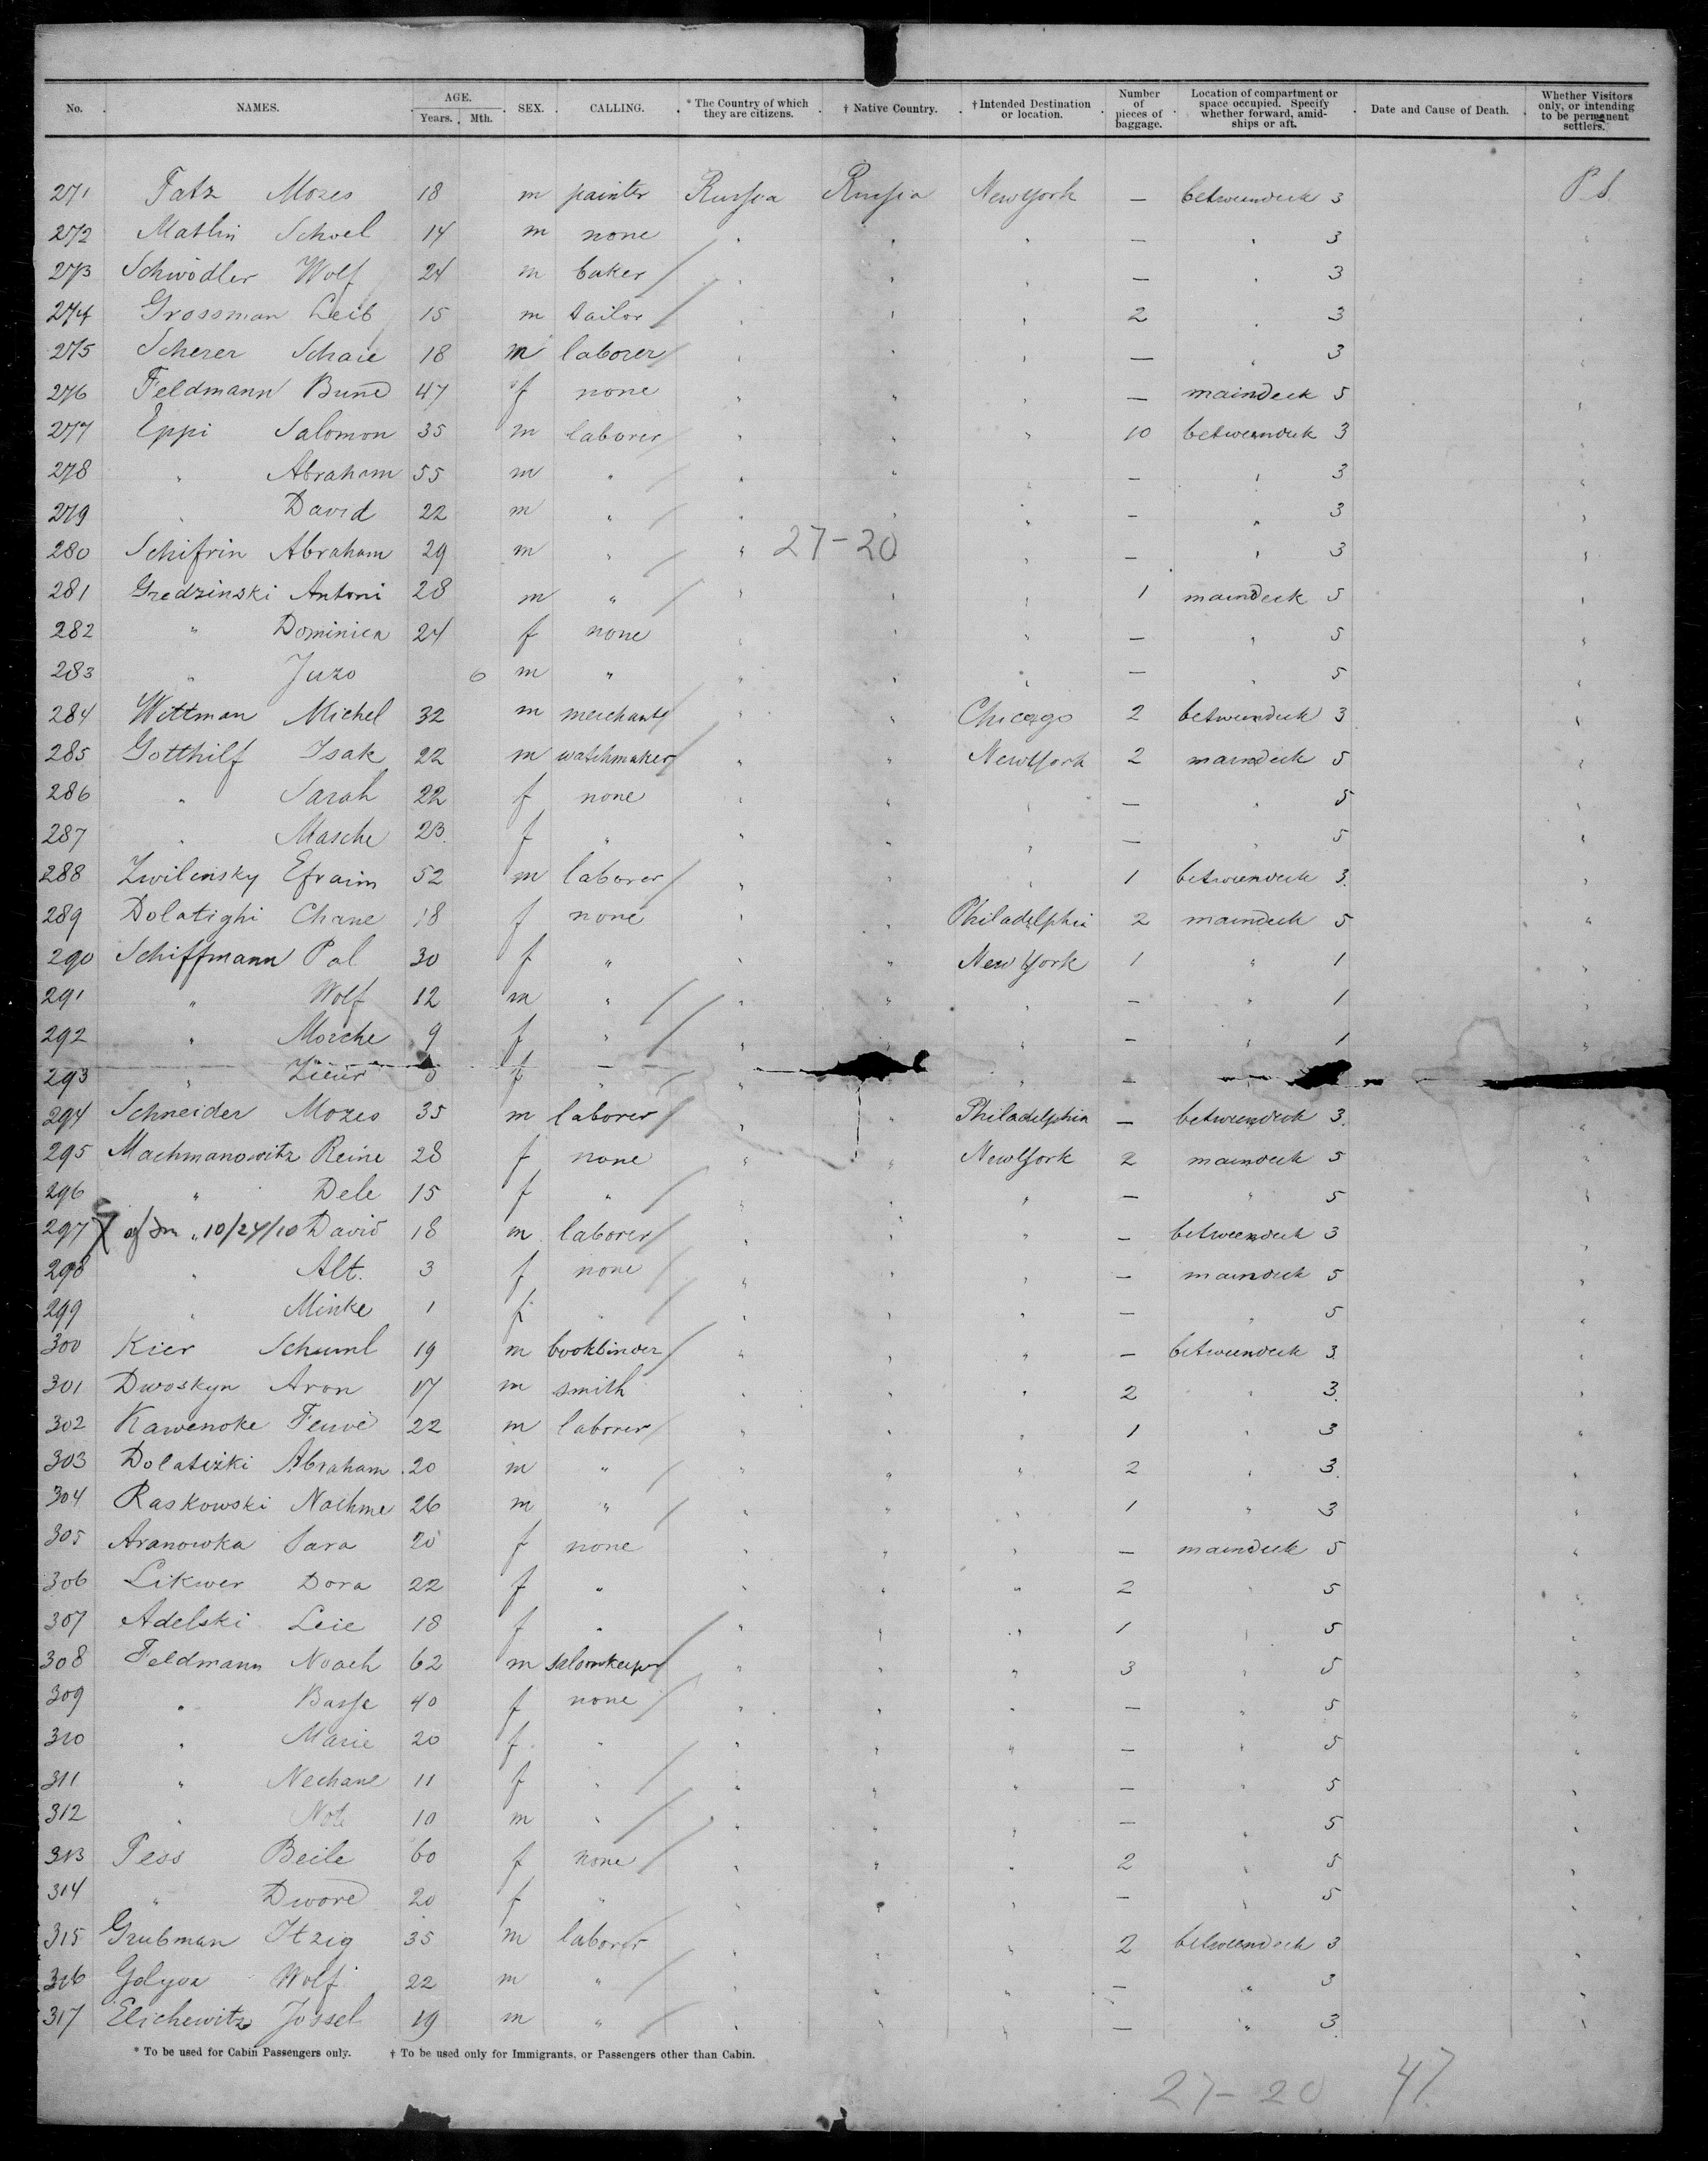 No. NAMES. AGE. Years. Mth. SEX. CALLING. * The Country of which they are citizens. † Native Country. † Intended Destination or location. Number of pieces of baggage. Location of compartment or space occupied. Specify whether forward, amidships or aft. Date and Cause of Death. Whether Visitors only, or intending to be permanent settlers.
271 Fatz Mozes 18 m painter Russia Russia New York — betweendeck 3 P.S.
272 Matlin Schoel 14 m none " " " — " 3 "
273 Schwödler Wolf 24 m baker " " " — " 3 "
274 Grossman Leib 15 m tailor " " " 2 " 3 "
275 Scherer Schaie 18 m laborer " " " — " 3 "
276 Feldmann Bune 47 f none " " " — maindeck 5 "
277 Eppi Salomon 35 m laborer " " " 10 betweendeck 3 "
278 " Abraham 55 m " " " " — " 3 "
279 " David 22 m " " " " — " 3 "
280 Schifrin Abraham 29 m " " 27-20 " — " 3 "
281 Gredzinski Antoni 28 m " " " " 1 maindeck 5 "
282 " Dominica 24 f none " " " — " 5 "
283 " Juzo 6 m " " " " — " 5 "
284 Wittman Michel 32 m merchant " " Chicago 2 betweendeck 3 "
285 Gotthilf Isak 22 m watchmaker " " New York 2 maindeck 5 "
286 " Sarah 22 f none " " " — " 5 "
287 " Masche 23 f " " " " — " 5 "
288 Zwilensky Efraim 52 m laborer " " " 1 betweendeck 3 "
289 Dolatighi Chane 18 f none " " Philadelphia 2 maindeck 5 "
290 Schiffmann Pal 30 f " " " New York 1 " 1 "
291 " Wolf 12 m " " " " — " 1 "
292 " Morche 9 f " " " " — " 1 "
293 " f " " " —
294 Schneider Mozes 35 m laborer " " Philadelphia — betweendeck 3 "
295 Machmanowitz Reine 28 f none " " New York 2 maindeck 5 "
296 " Dele 15 f " " " " — " 5 "
297 " 10/24/10 David 18 m laborer " " " — betweendeck 3 "
298 " Alt. 3 f none " " " — maindeck 5 "
299 " Minke 1 f " " " " — " 5 "
300 Kier Schuml 19 m bookbinder " " " — betweendeck 3 "
301 Dwoskyn Aron 17 m smith " " " 2 " 3 "
302 Kawenoke Feuve 22 m laborer " " " 1 " 3 "
303 Dolatizki Abraham 20 m " " " " 2 " 3 "
304 Raskowski Nachme 26 m " " " " 1 " 3 "
305 Aranowka Sara 20 f none " " " — maindeck 5 "
306 Likwer Dora 22 f " " " " 2 " 5 "
307 Adelski Leie 18 f " " " " 1 " 5 "
308 Feldmann Noach 62 m saloonkeeper " " " 3 " 5 "
309 " Basse 40 f none " " " — " 5 "
310 " Marie 20 f " " " " — " 5 "
311 " Nechane 11 f " " " " — " 5 "
312 " Note 10 m " " " " — " 5 "
313 Pess Beile 60 f none " " " 2 " 5 "
314 " Dwore 20 f " " " " — " 5 "
315 Grubman Itzig 35 m laborer " " " 2 betweendeck 3 "
316 Golyoa Wolf 22 m " " " " — " 3 "
317 Elichewitz Jossel 19 m " " " " — " 3 "
* To be used for Cabin Passengers only. † To be used only for Immigrants, or Passengers other than Cabin.
27-20 47